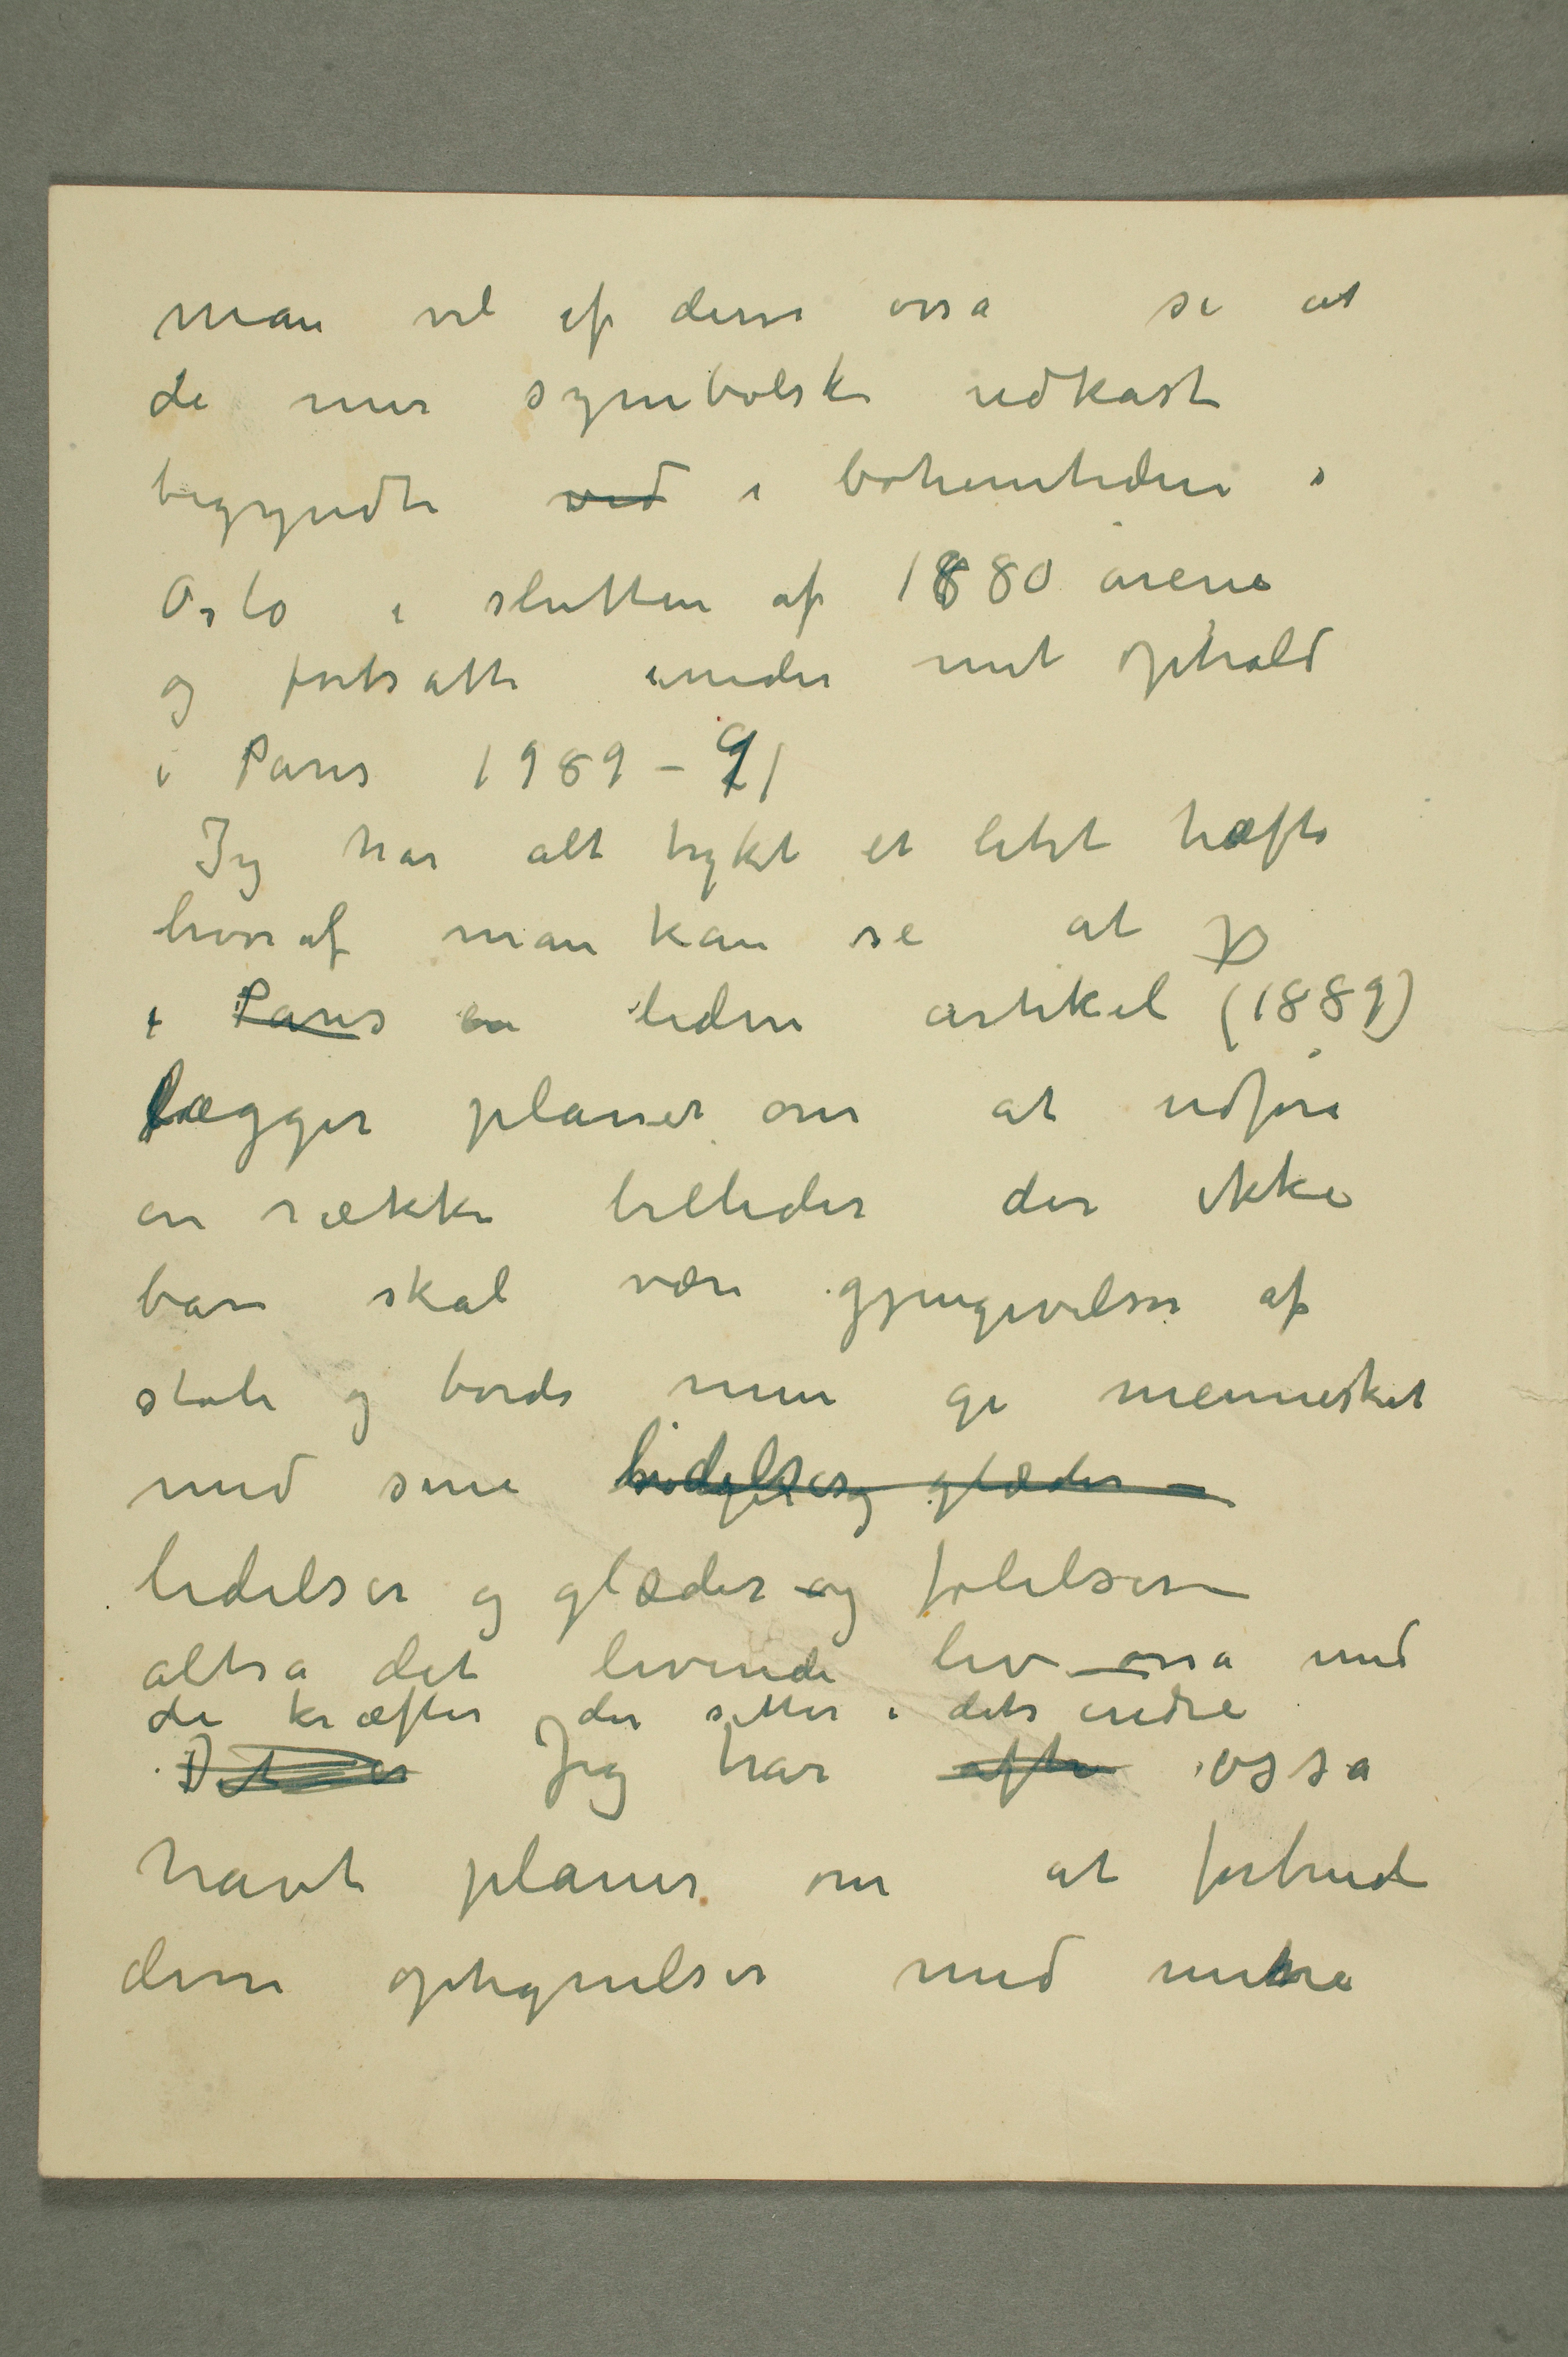 man vil af disse ossa se at
de mer symbolske udkast
begyndte ved i bohemtiden i
Oslo i slutten af 1880 arene
og fortsatte under mit ophold
i Paris 1989 – 91
Jeg har alt trykt et litet hæfte
hvoraf man kan se at jeg
i Paris en liden artikel (1889)
lægger planer om at udføre
en række billeder der ikke
bare skal være gjengivelser af
stole og borde men gi mennesket
med sine lidelser og glæder –
lidelser og glæder og følelser –
altså det levende liv – ossa med
de kræfter der sitter i dets indre
Det er Jeg har ofte ossa
havt planer om at forbinde
disse optegnelser med mine